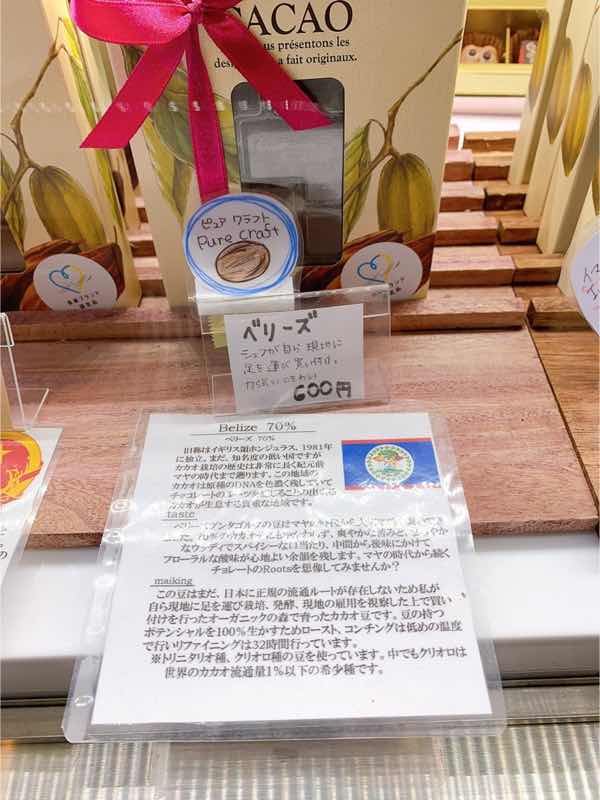 CACAO
us présentons les
a fait originaux.
ピュア クラフト
Pure Craft
ベリーズ
シェフが自ら現地に
足を運び買い付け。
600円
Belize 70%
ベリーズ 70%
旧称はイギリス領ホンジュラス、1981年
に独立。まだ、知名度の低い国ですが
カカオ栽培の歴史は非常に長く紀元前
マヤの時代まで遡ります。この地域の
カカオは原種のDNAを色濃く残していて
チョコレートの
カカオが生息する貴重な地域です。
taste
爽やかに
なウッディでスパイシーな口当たり、中間から後味にかけて
フローラルな酸味が心地よい余韻を残します。マヤの時代から続く
チョレートのRootsを想像してみませんか?
maiking
この豆はまだ、日本に正規の流通ルートが存在しないため私が
自ら現地に足を運び栽培、発酵、現地の雇用を視察した上で買い
付けを行ったオーガニックの森で育ったカカオ豆です。豆の持つ
ポテンシャルを100%生かすためロースト、コンチングは低めの温度
で行いリファイニングは32時間行っています。
※トリニタリオ種、クリオロ種の豆を使っています。中でもクリオロは
世界のカカオ流通量1%以下の希少種です。